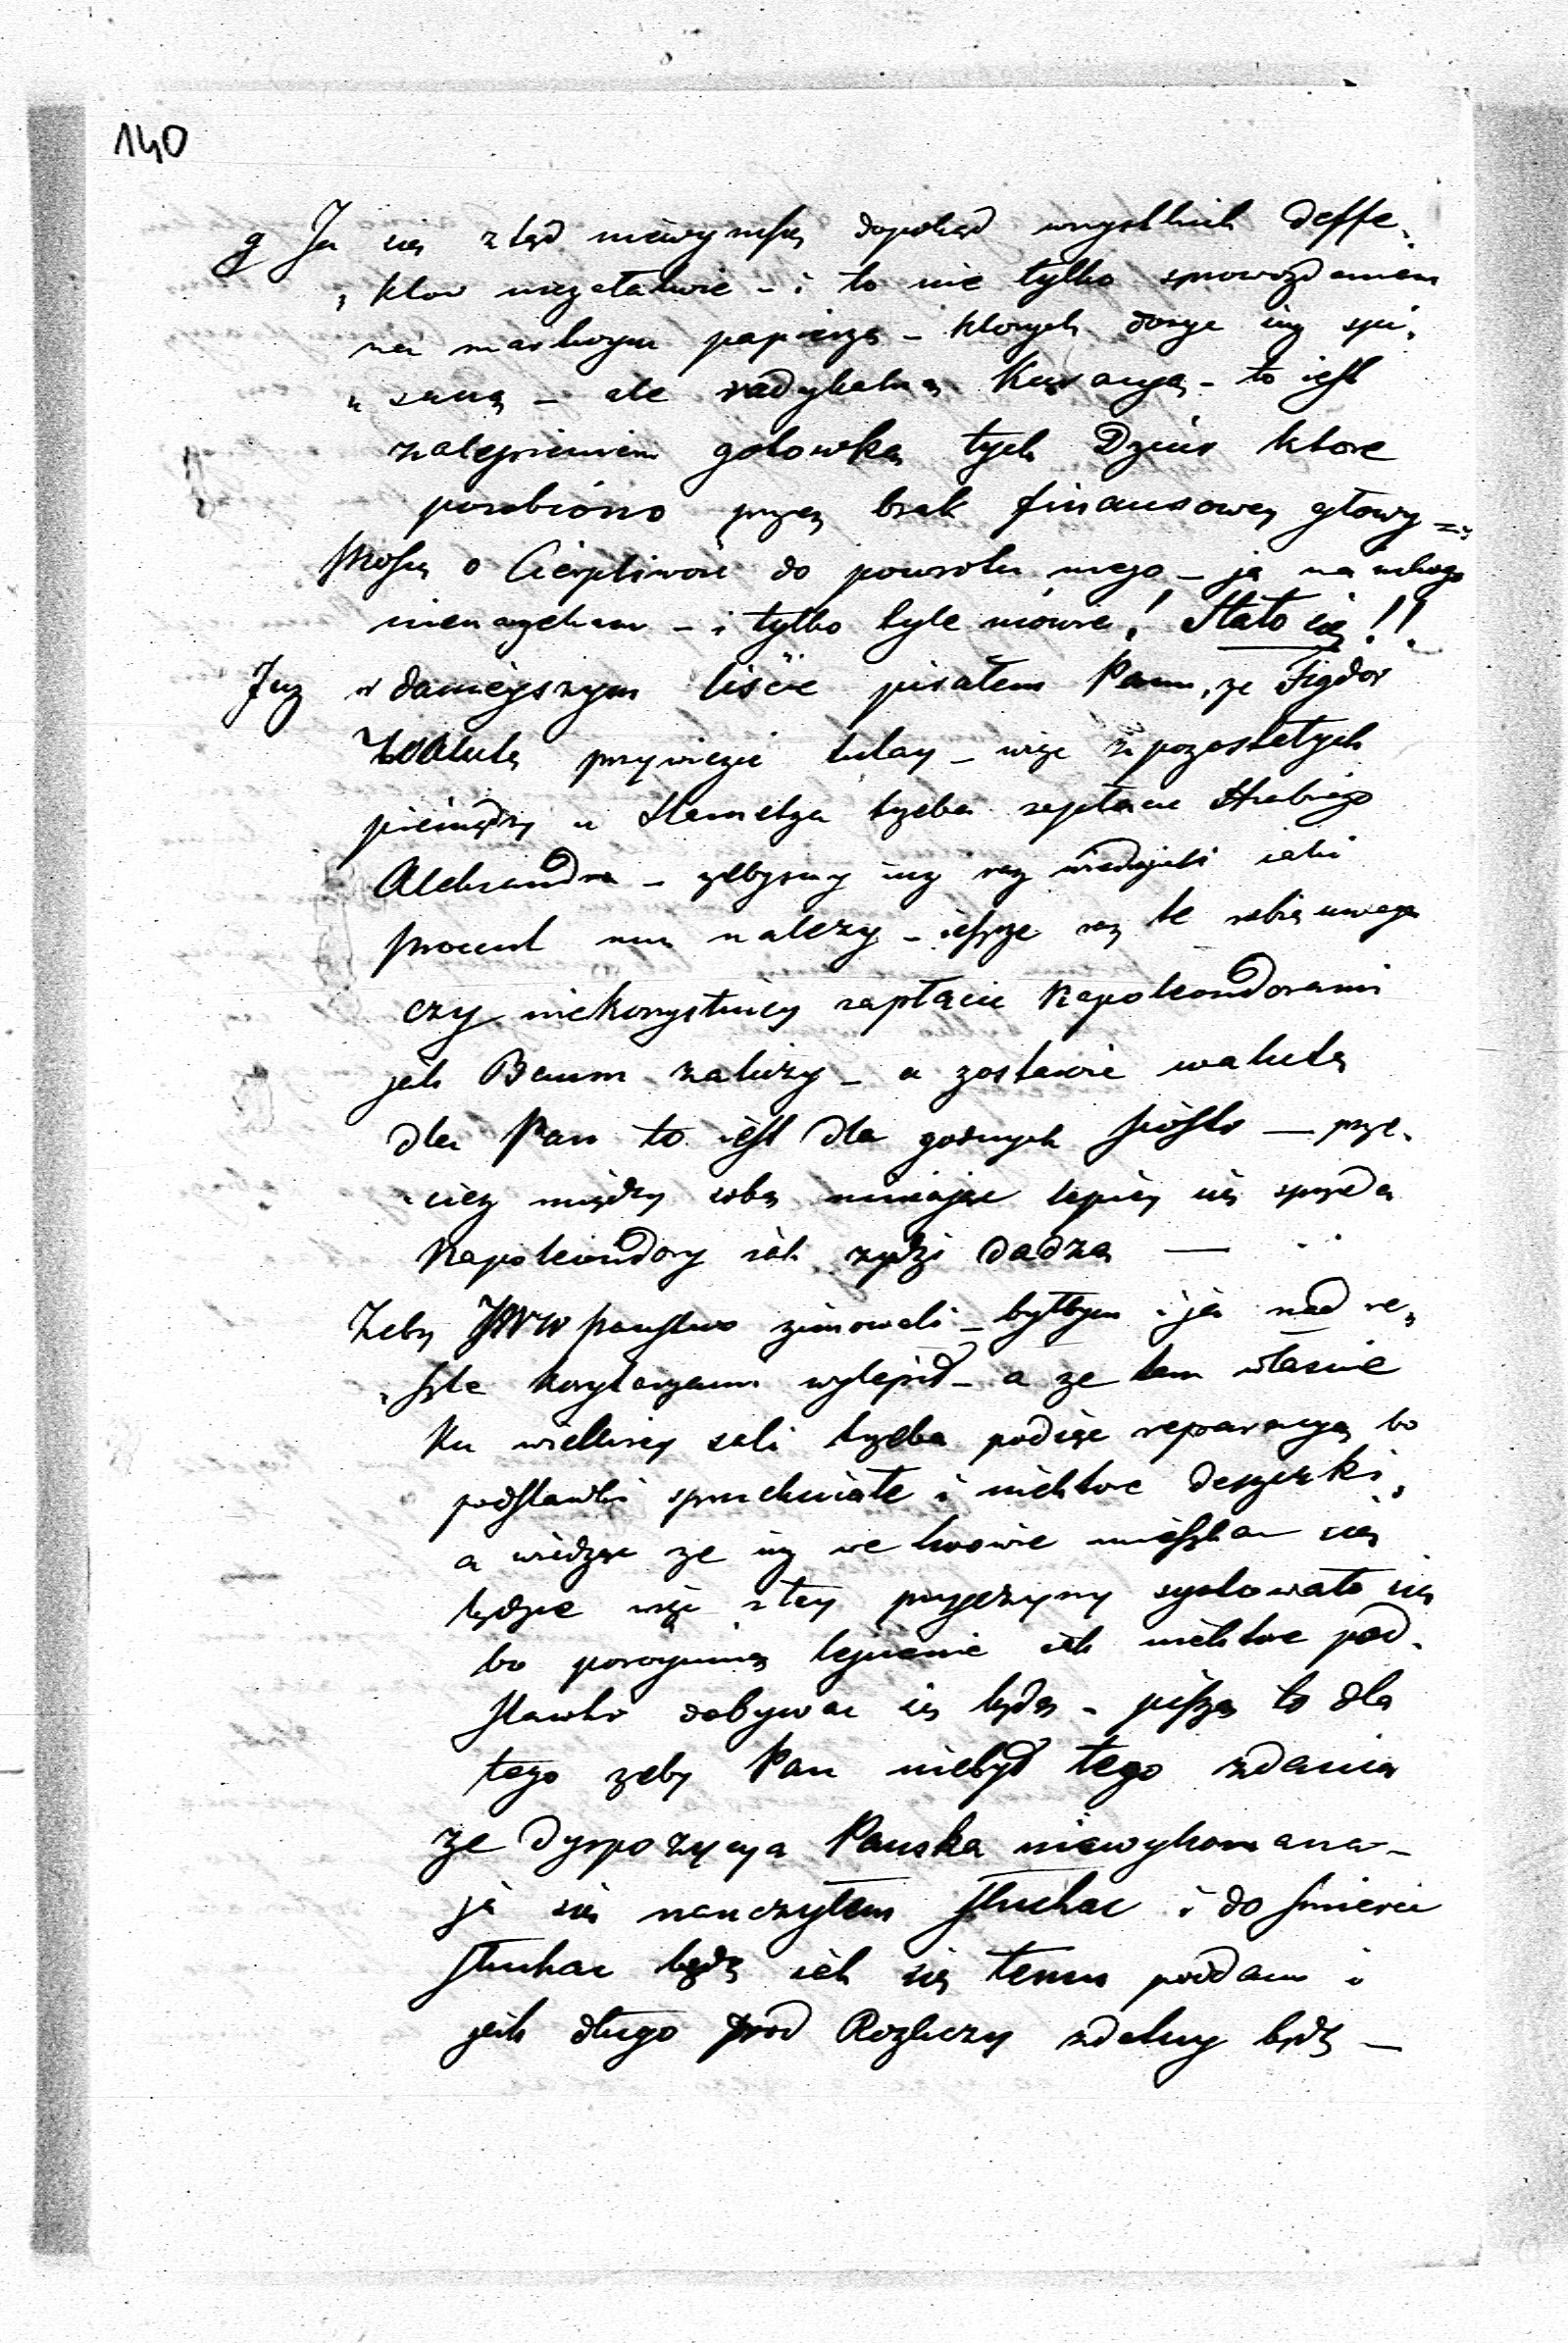 140
g Ja się ztąd niewyniosę dopokąd wszystkich deffe-
któw niezałatwie - i to nie tylko sprowozdaniem
na martwym papierze - ktorych dosyc iuż spi-
saną - ale radykalną Kuracyą - to iest
zalepieniem gotowką tych Dziur ktore
porobióno przez brak finansowey głowy =
proszę o Cierpliwość do powrotu mego - ja na nikogo
nienarzekam - i tylko tyle mówie! Stało się!!
Juz w dawniejszym liście pisałem Panu, ze Figdor
Walutę przywiezie tutay - więc z pozostałych
pieniędzy u Stametza trzeba zapłacic Hrabiego
Alexandra - zebysmy iuz raz wiedzieli iaki
procent mu nalezy - ieszcze raz te robię uwagę
czy niekorzystniey zapłacic Napoleondorami
jak Baum zaliczy - a zostawic walutę
dla Pan to iest dla godnych sióstr — prze-
ciez między sobą mieniając lepiey się sprzeda
Napoleondory iak zydzi dadzą —
Zeby JWW Panstwo zimowali - byłbym i ja nad re-
sztę korytarzami wylepił - a ze tam własnie
Ku wielkiey sali trzeba podiąc reparacyą bo
podstawki spruchniałe i niektore deszczki,
a widząc ze iuz we Lwowie mieszkac się
będzie więc z tey przyczyny systowało się
bo poczynią lepienie iak niektore pod-
stawki dobywac się będą - piszę to dla
tego zeby Pan niebył tego zdania
ze Dyspozycya Panska niewykonana -
ja się nauczyłem słuchac i do smierci
słuchac będę iak się temu poddam i
jak długo pod Rozkazy zdatny będę —